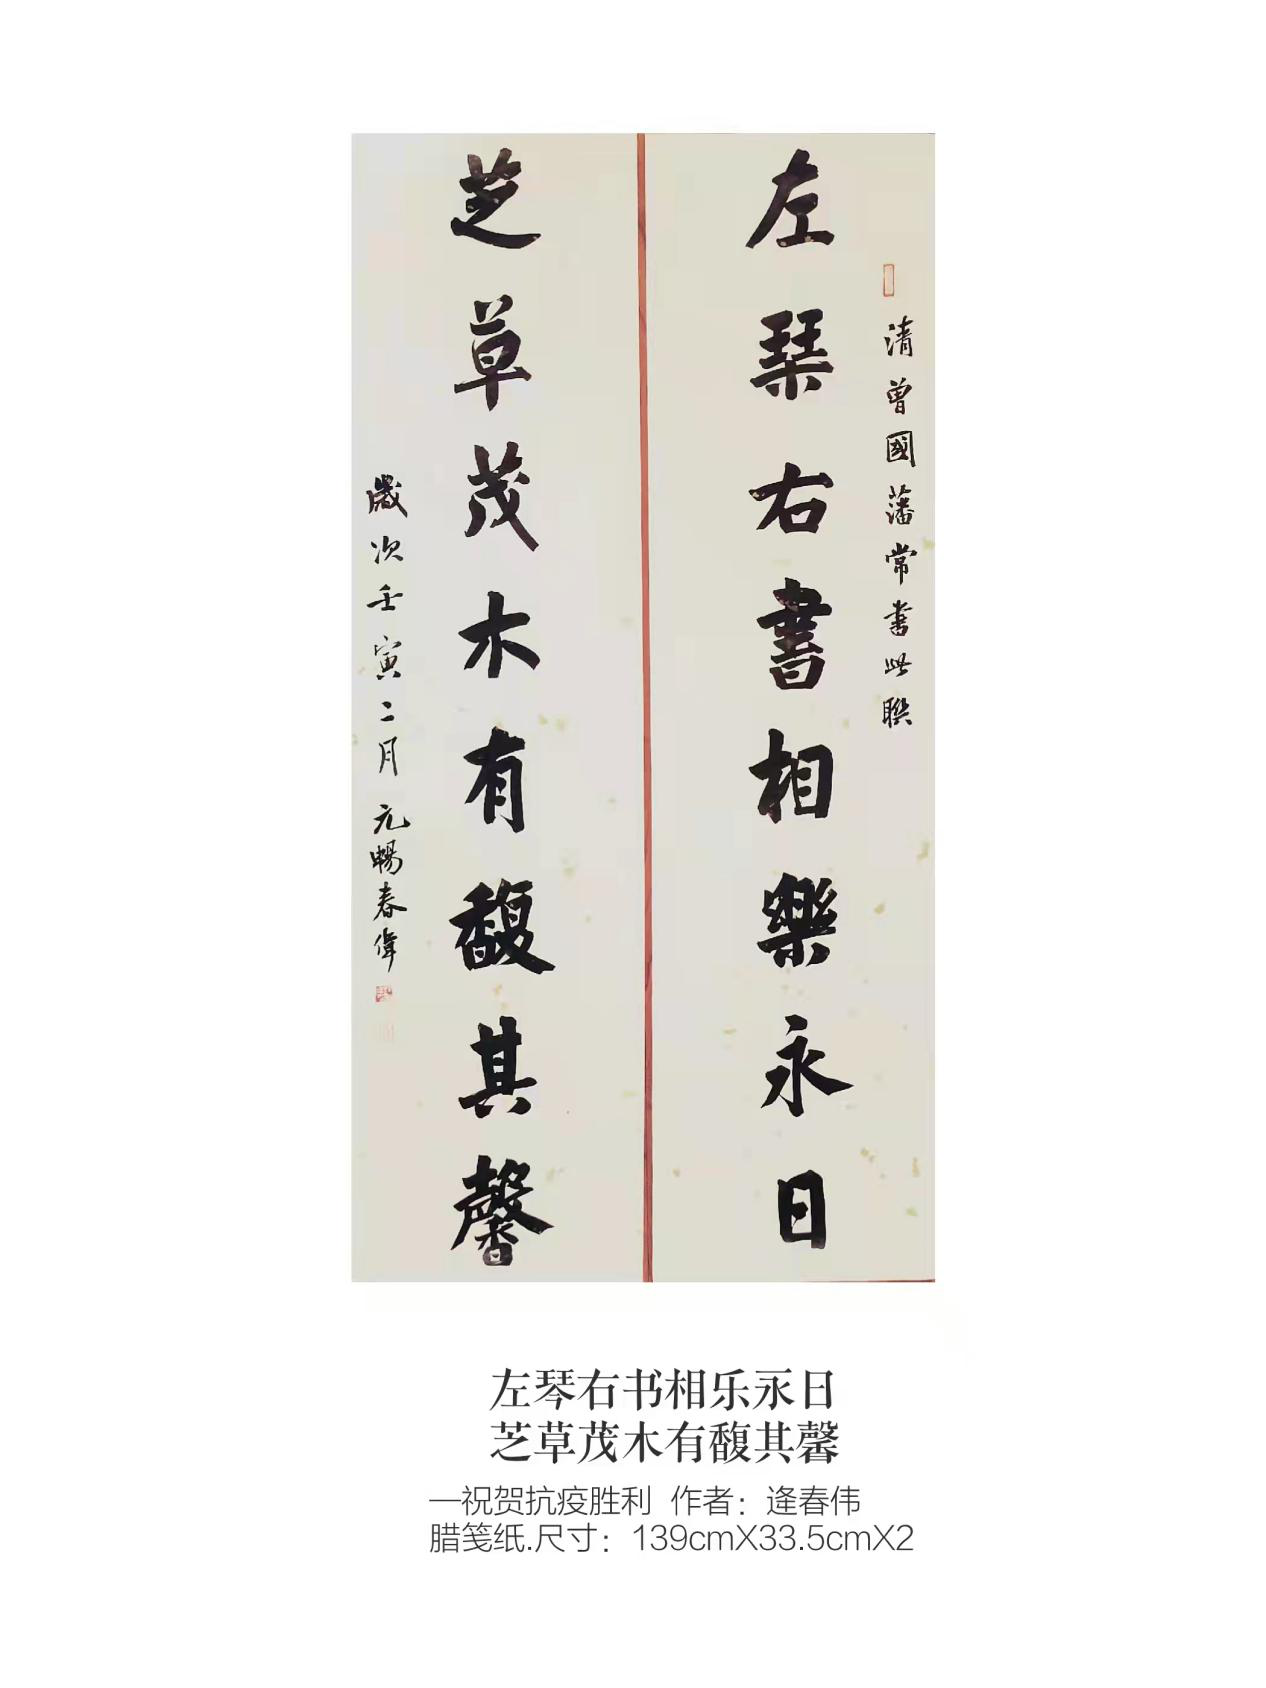 清曾國藩常書此聯
左琹右書相樂永日
芝草茂木有馥其馨
歲次壬寅二月元暢春偉
左琴右书相乐永日
芝草茂木有馥其馨
—祝贺抗疫胜利 作者：逄春伟
腊笺纸.尺寸：139cmX33.5cmX2